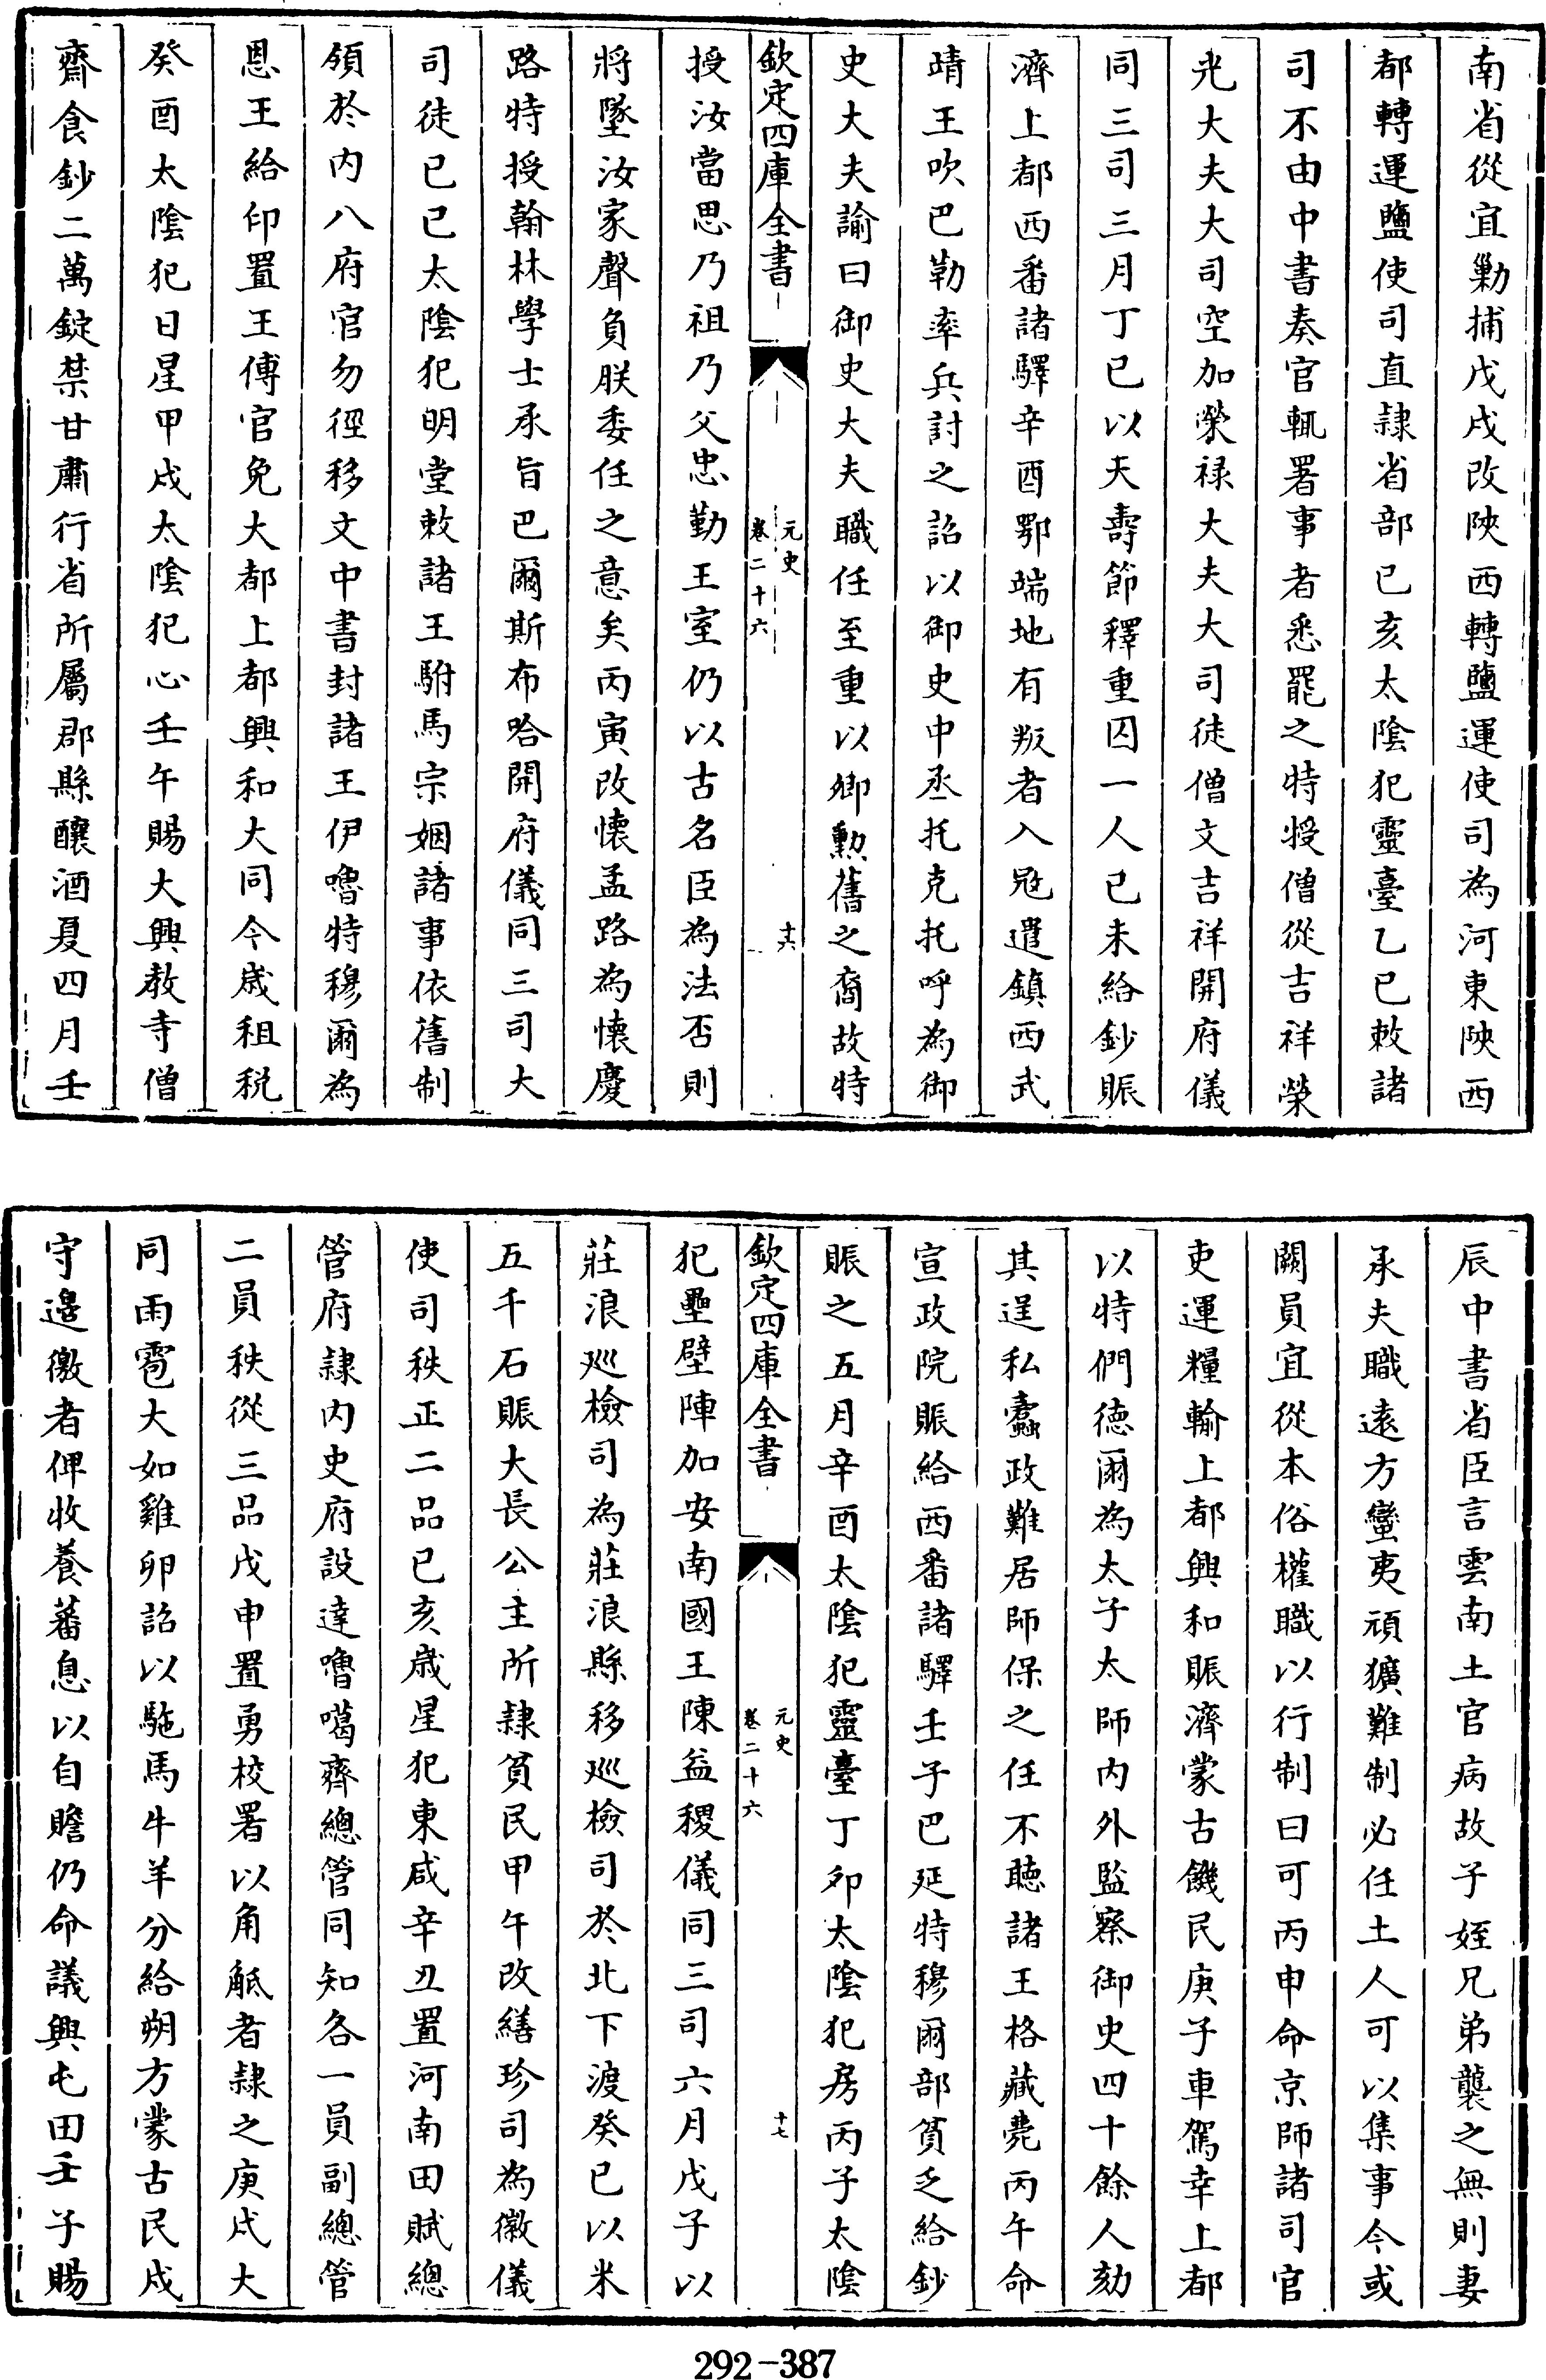 南省從宜勦捕戊戌改陝西轉鹽運使司為河東陝西
都轉運鹽使司直隷省部己亥太陰犯靈臺乙巳敕諸
司不由中書奏官輒署事者悉罷之特授僧從吉祥榮
光大夫大司空加榮禄大夫大司徒僧文吉祥開府儀
同三司三月丁巳以天壽節釋重囚一人己未給鈔賑
濟上都西番諸驛辛酉鄂端地有叛者入冦遣鎮西武
靖王吹巴勒率兵討之詔以御史中丞托克托呼為御
史大夫諭曰御史大夫職任至重以卿勲舊之裔故特
欽定四庫全書
元史
卷二十六
十六
授汝當思乃祖乃父忠勤王室仍以古名臣為法否則
將墜汝家聲負朕委任之意矣丙寅改懷孟路為懷慶
路特授翰林學士承旨巴爾斯布哈開府儀同三司大
司徒己巳太陰犯明堂敕諸王駙馬宗姻諸事依舊制
領於内八府官勿徑移文中書封諸王伊嚕特穆爾為
恩王給印置王傅官免大都上都興和大同今歲租税
癸酉太陰犯日星甲戌太陰犯心壬午賜大興教寺僧
齋食鈔二萬錠禁甘肅行省所屬郡縣釀酒夏四月壬
辰中書省臣言雲南土官病故子姪兄弟襲之無則妻
承夫職遠方蠻夷頑獷難制必任土人可以集事今或
闕員宜從本俗權職以行制曰可丙申命京師諸司官
吏運糧輸上都興和賑濟蒙古饑民庚子車駕幸上都
以特們德爾為太子太師内外監察御史四十餘人劾
其逞私蠹政難居師保之任不聽諸王格藏薨丙午命
宣政院賑給西番諸驛壬子巴延特穆爾部貧乏給鈔
賑之五月辛酉太陰犯靈臺丁卯太陰犯房丙子太陰
欽定四庫全書
元史
卷二十六
十七
犯壘壁陣加安南國王陳益稷儀同三司六月戊子以
莊浪廵檢司為莊浪縣移廵檢司於北下渡癸巳以米
五千石賑大長公主所隷貧民甲午改繕珍司為徽儀
使司秩正二品己亥歲星犯東咸辛丑置河南田賦總
管府隷内史府設達嚕噶齊總管同知各一員副總管
二員秩從三品戊申置勇校署以角觝者隷之庚戌大
同雨雹大如雞卵詔以駞馬牛羊分給朔方蒙古民戍
守邊徼者俾收養蕃息以自贍仍命議興屯田壬子賜
292-387